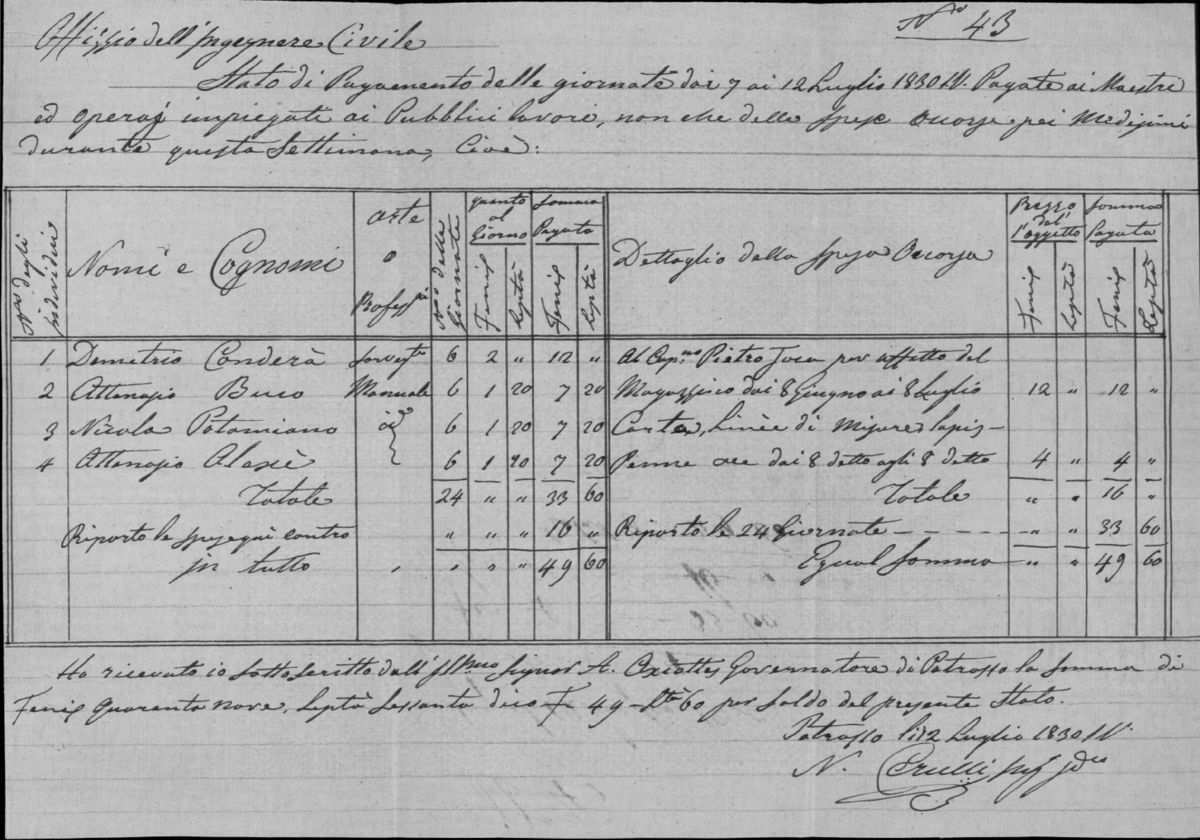 Nro 43
Offizio dell'Ingegnere Civile
Stato di Pagamento delle giornate dai 7 ai 12 Luglio 1830 Pagate ai Maestri
ed operaj impiegati ai Pubblici lavori, non che delle spese occorse pei Medesimi
durante questa Settimana, Cioè:
Nro degli individui | Nomi e Cognomi | Arte o Profess.ni | Nro delle Giornate | quanto al Giorno Fenis Leptà | Somma Pagata Fenis Leptà | Dettaglio della spesa Occorsa | Prezzo del l'oggetto Fenis Leptà | Somma Pagata Fenis Leptà
1 Demetrio Conderà 6 2 " 12 " Al Cap.no Pietro per affitto del
2 Attanasio Buco Manuale 6 1 20 7 20 Magazzino dai 8 Giugno ai 8 Luglio 12 " 12 "
3 Nicola Potamiano id 6 1 20 7 20 Carta, Linee di Misure, lapis-
4 Attanasio Alexiè 6 1 20 7 20 Penne dai 8 detto agli 8 detto 4 " 4 "
Totale 24 " " 33 60 Totale " " 16 "
Riporto le spese quì contro " " " 16 " Riporto le 24 Giornate - - - - - " " 33 60
In tutto " " " " 49 60 Egual Somma - " " 49 60
Ho ricevuto io sottoscritto dall'Ill.mo Signor A. Governatore di Patrasso la somma di
Fenis quaranta nove, Leptà sessanta dico F 49 - Ltà 60 per saldo del presente Stato.
Patrasso li 12 Luglio 1830
N.